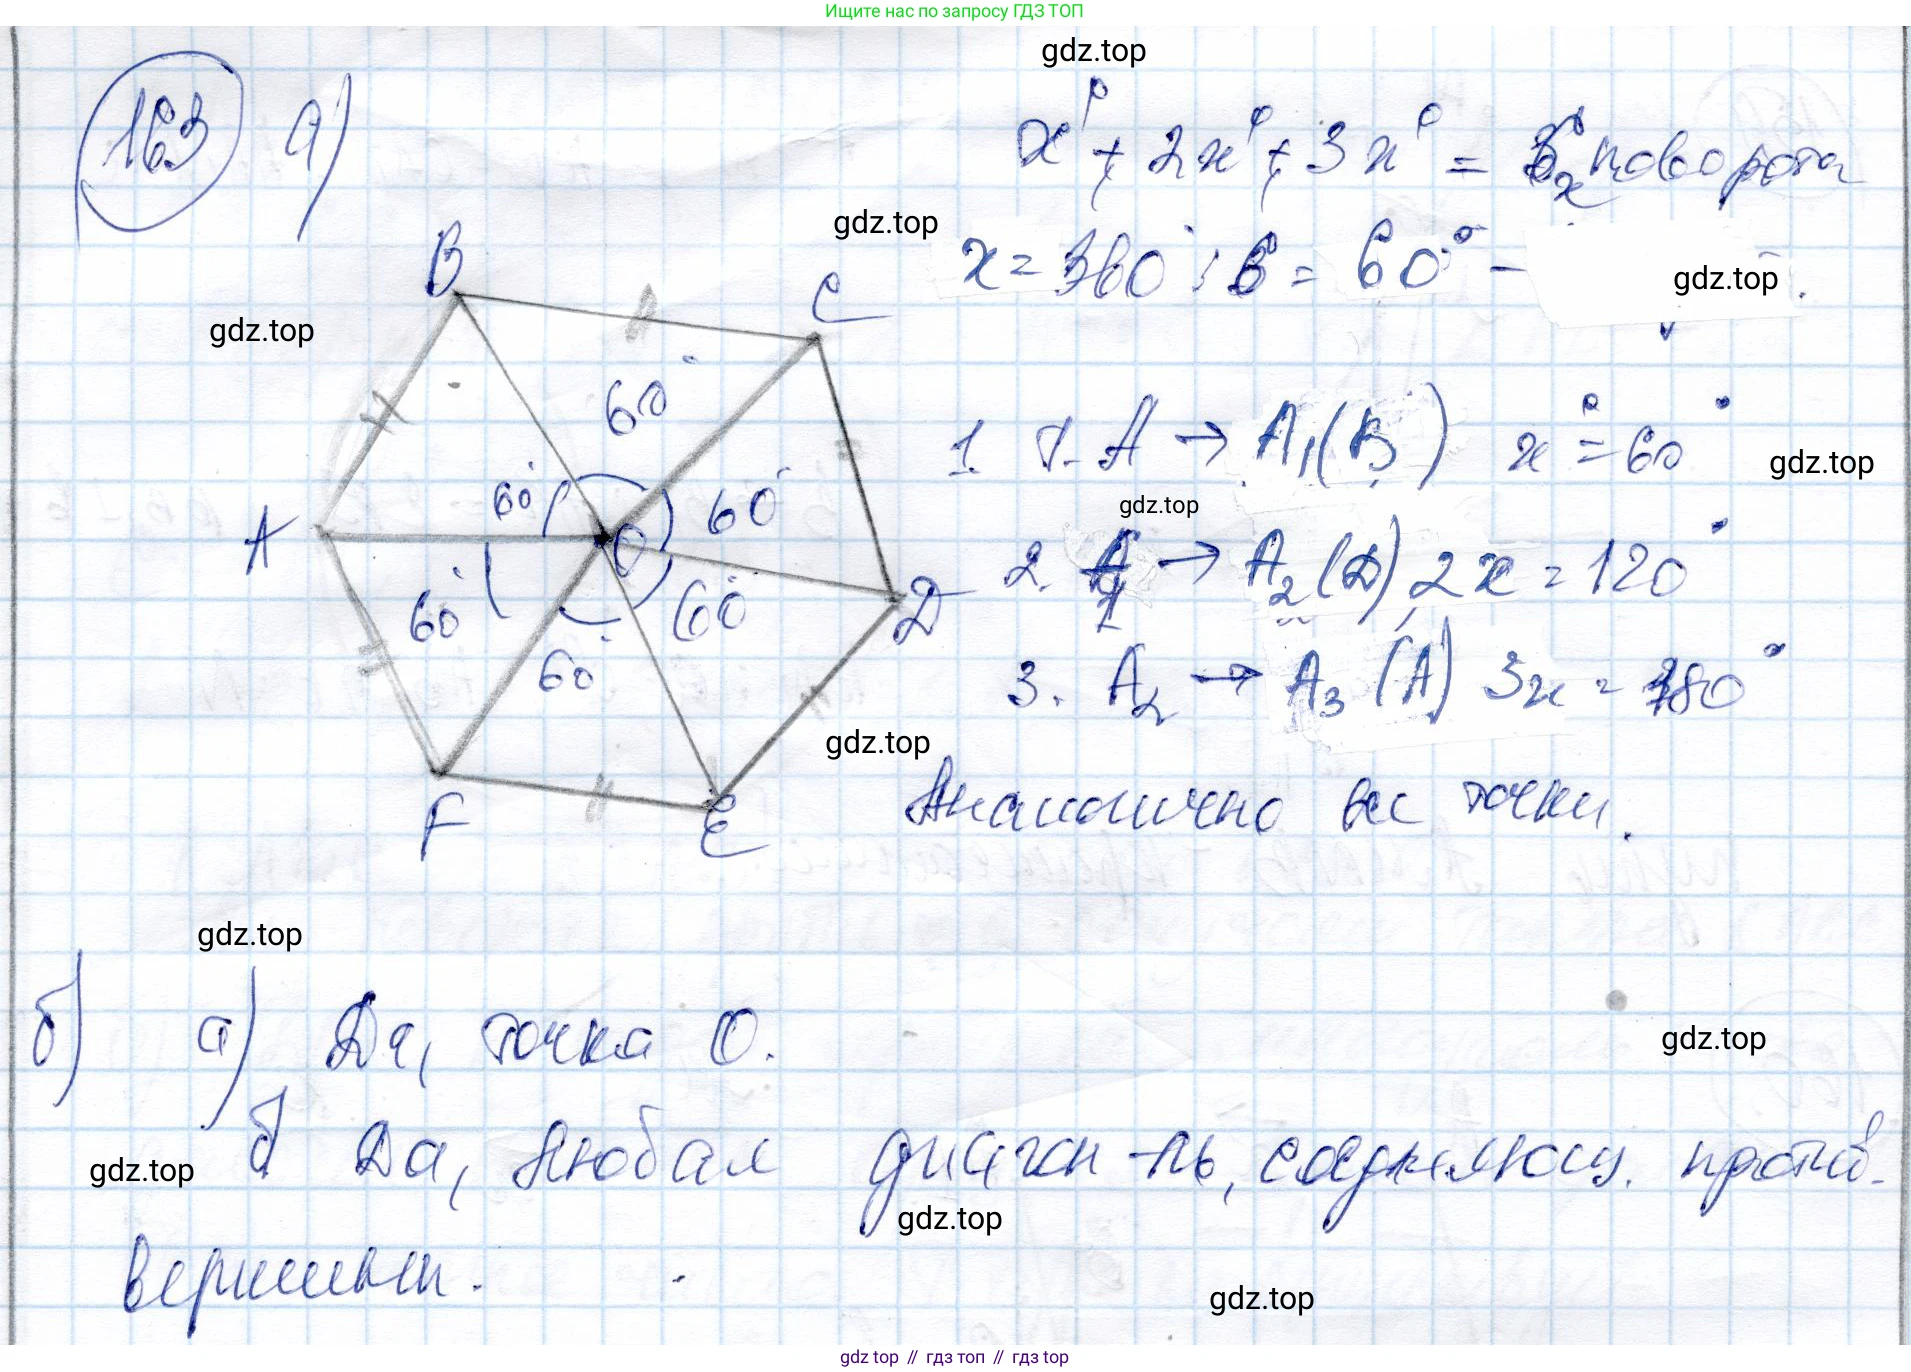 Ищите нас по запросу ГДЗ ТОП
gdz.top
163 а)
x° + 2x° + 3x° = поворота
gdz.top
x = 360° : 6 = 60° –
gdz.top
gdz.top
B
C
60°
1. т. A → A₁(B) x° = 60°
gdz.top
60°
60°
gdz.top
A
O
2. → A₂(D), 2x = 120°
60°
60°
D
60
3. A₂ → A₃ (A) 3x = 180°
gdz.top
F
E
Аналогично все точки.
gdz.top
б) а) Да, точка O.
gdz.top
б) Да, любая диагон-ль, соединяющ. против.
gdz.top
gdz.top
вершины.
gdz.top
gdz top // гдз топ // гдз top